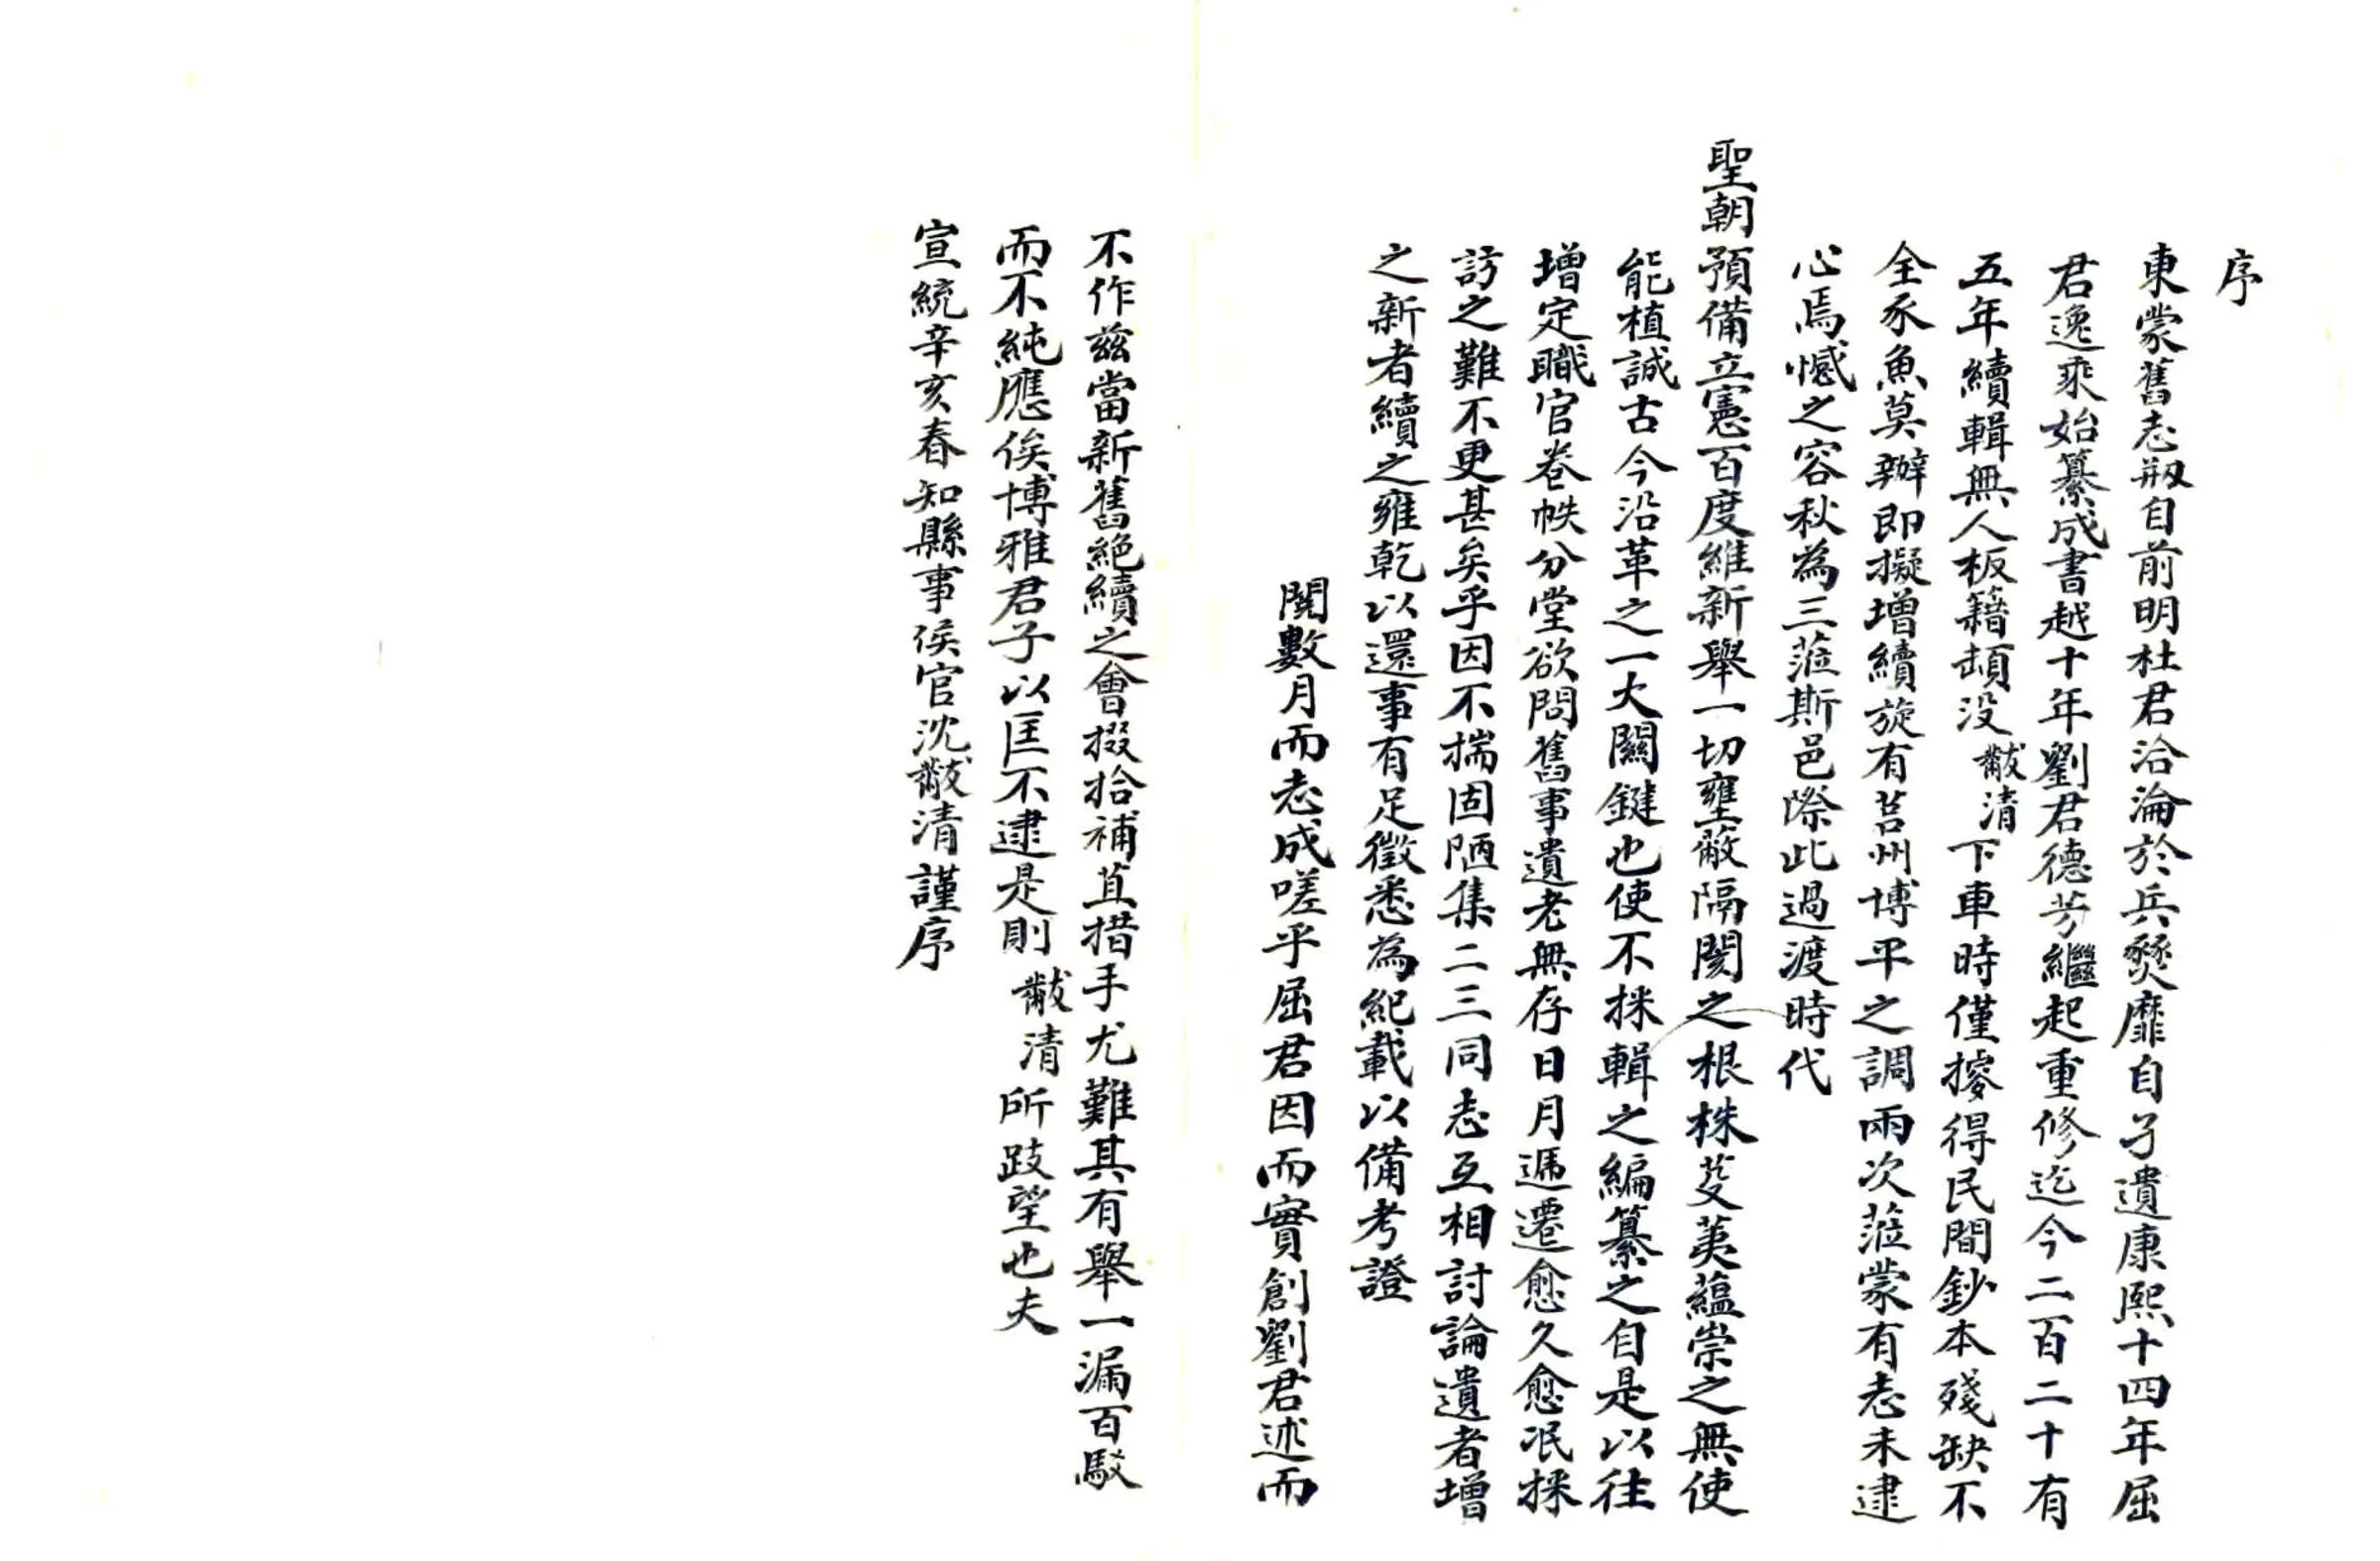 序
東蒙舊志刱自前明杜君洽淪於兵燹靡自孑遺康熙十四年屈
君逸乘始纂成書越十年劉君德芳繼起重修迄今二百二十有
五年續輯無人板籍頓没黻清下車時僅據得民間鈔本殘缺不
全豕魚莫辦即擬增續旋有莒州博平之調兩次蒞蒙有志未逮
心焉憾之客秋為三蒞斯邑際此過渡時代
聖朝預備立憲百度維新舉一切壅蔽隔閡之根株芟荑蘊崇之無使
能植誠古今沿革之一大關鍵也使不採輯之編纂之自是以往
增定職官卷帙分堂欲問舊事遺老無存日月遞遷愈久愈泯採
訪之難不更甚矣乎因不揣固陋集二三同志互相討論遺者增
之新者續之雍乾以還事有足徵悉為紀載以備考證
閱數月而志成嗟乎屈君因而實創劉君述而
不作茲當新舊絕續之會掇拾補苴措手尤難其有舉一漏百駁
而不純應俟博雅君子以匡不逮是則黻清所跂望也夫
宣統辛亥春知縣事侯官沈黻清謹序